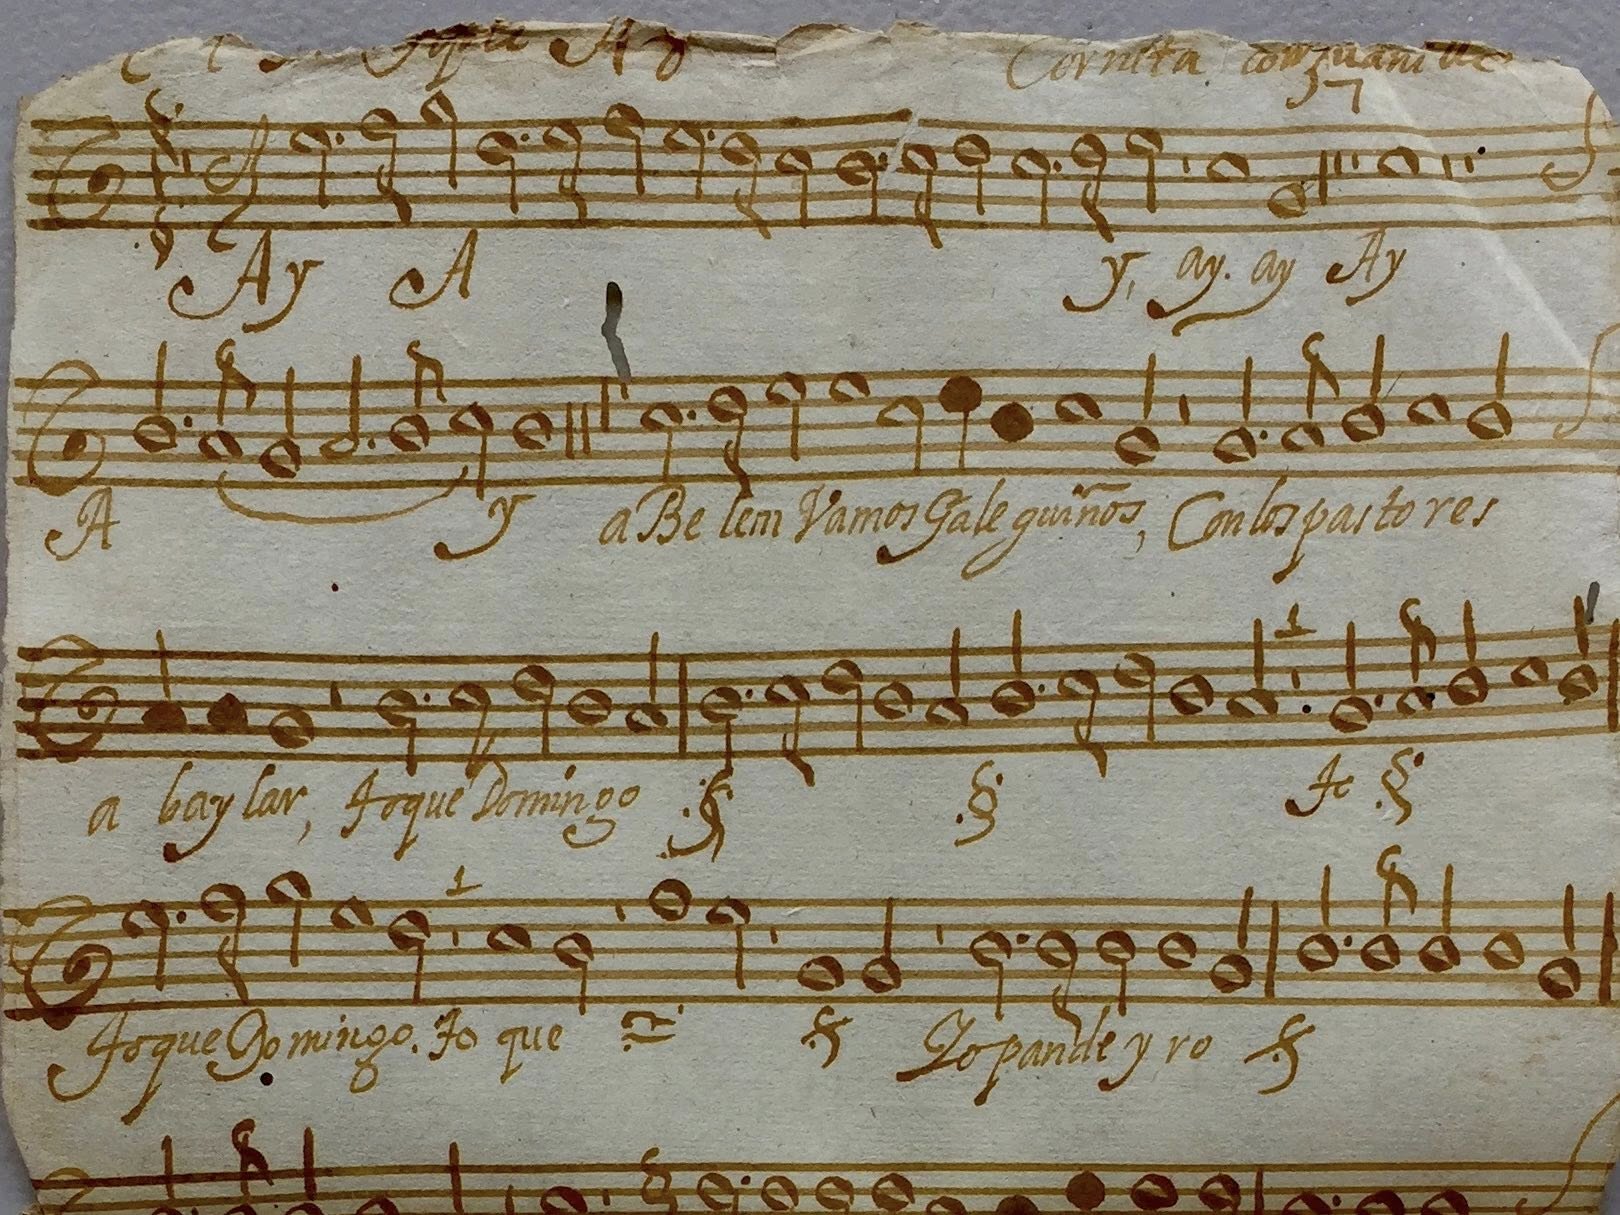 Ay A y, ay. ay Ay
A y a Be lem Vamos Gale guiños, Con los pas to res
a bay lar, toque Domingo to
toque Domingo. to que pande y ro